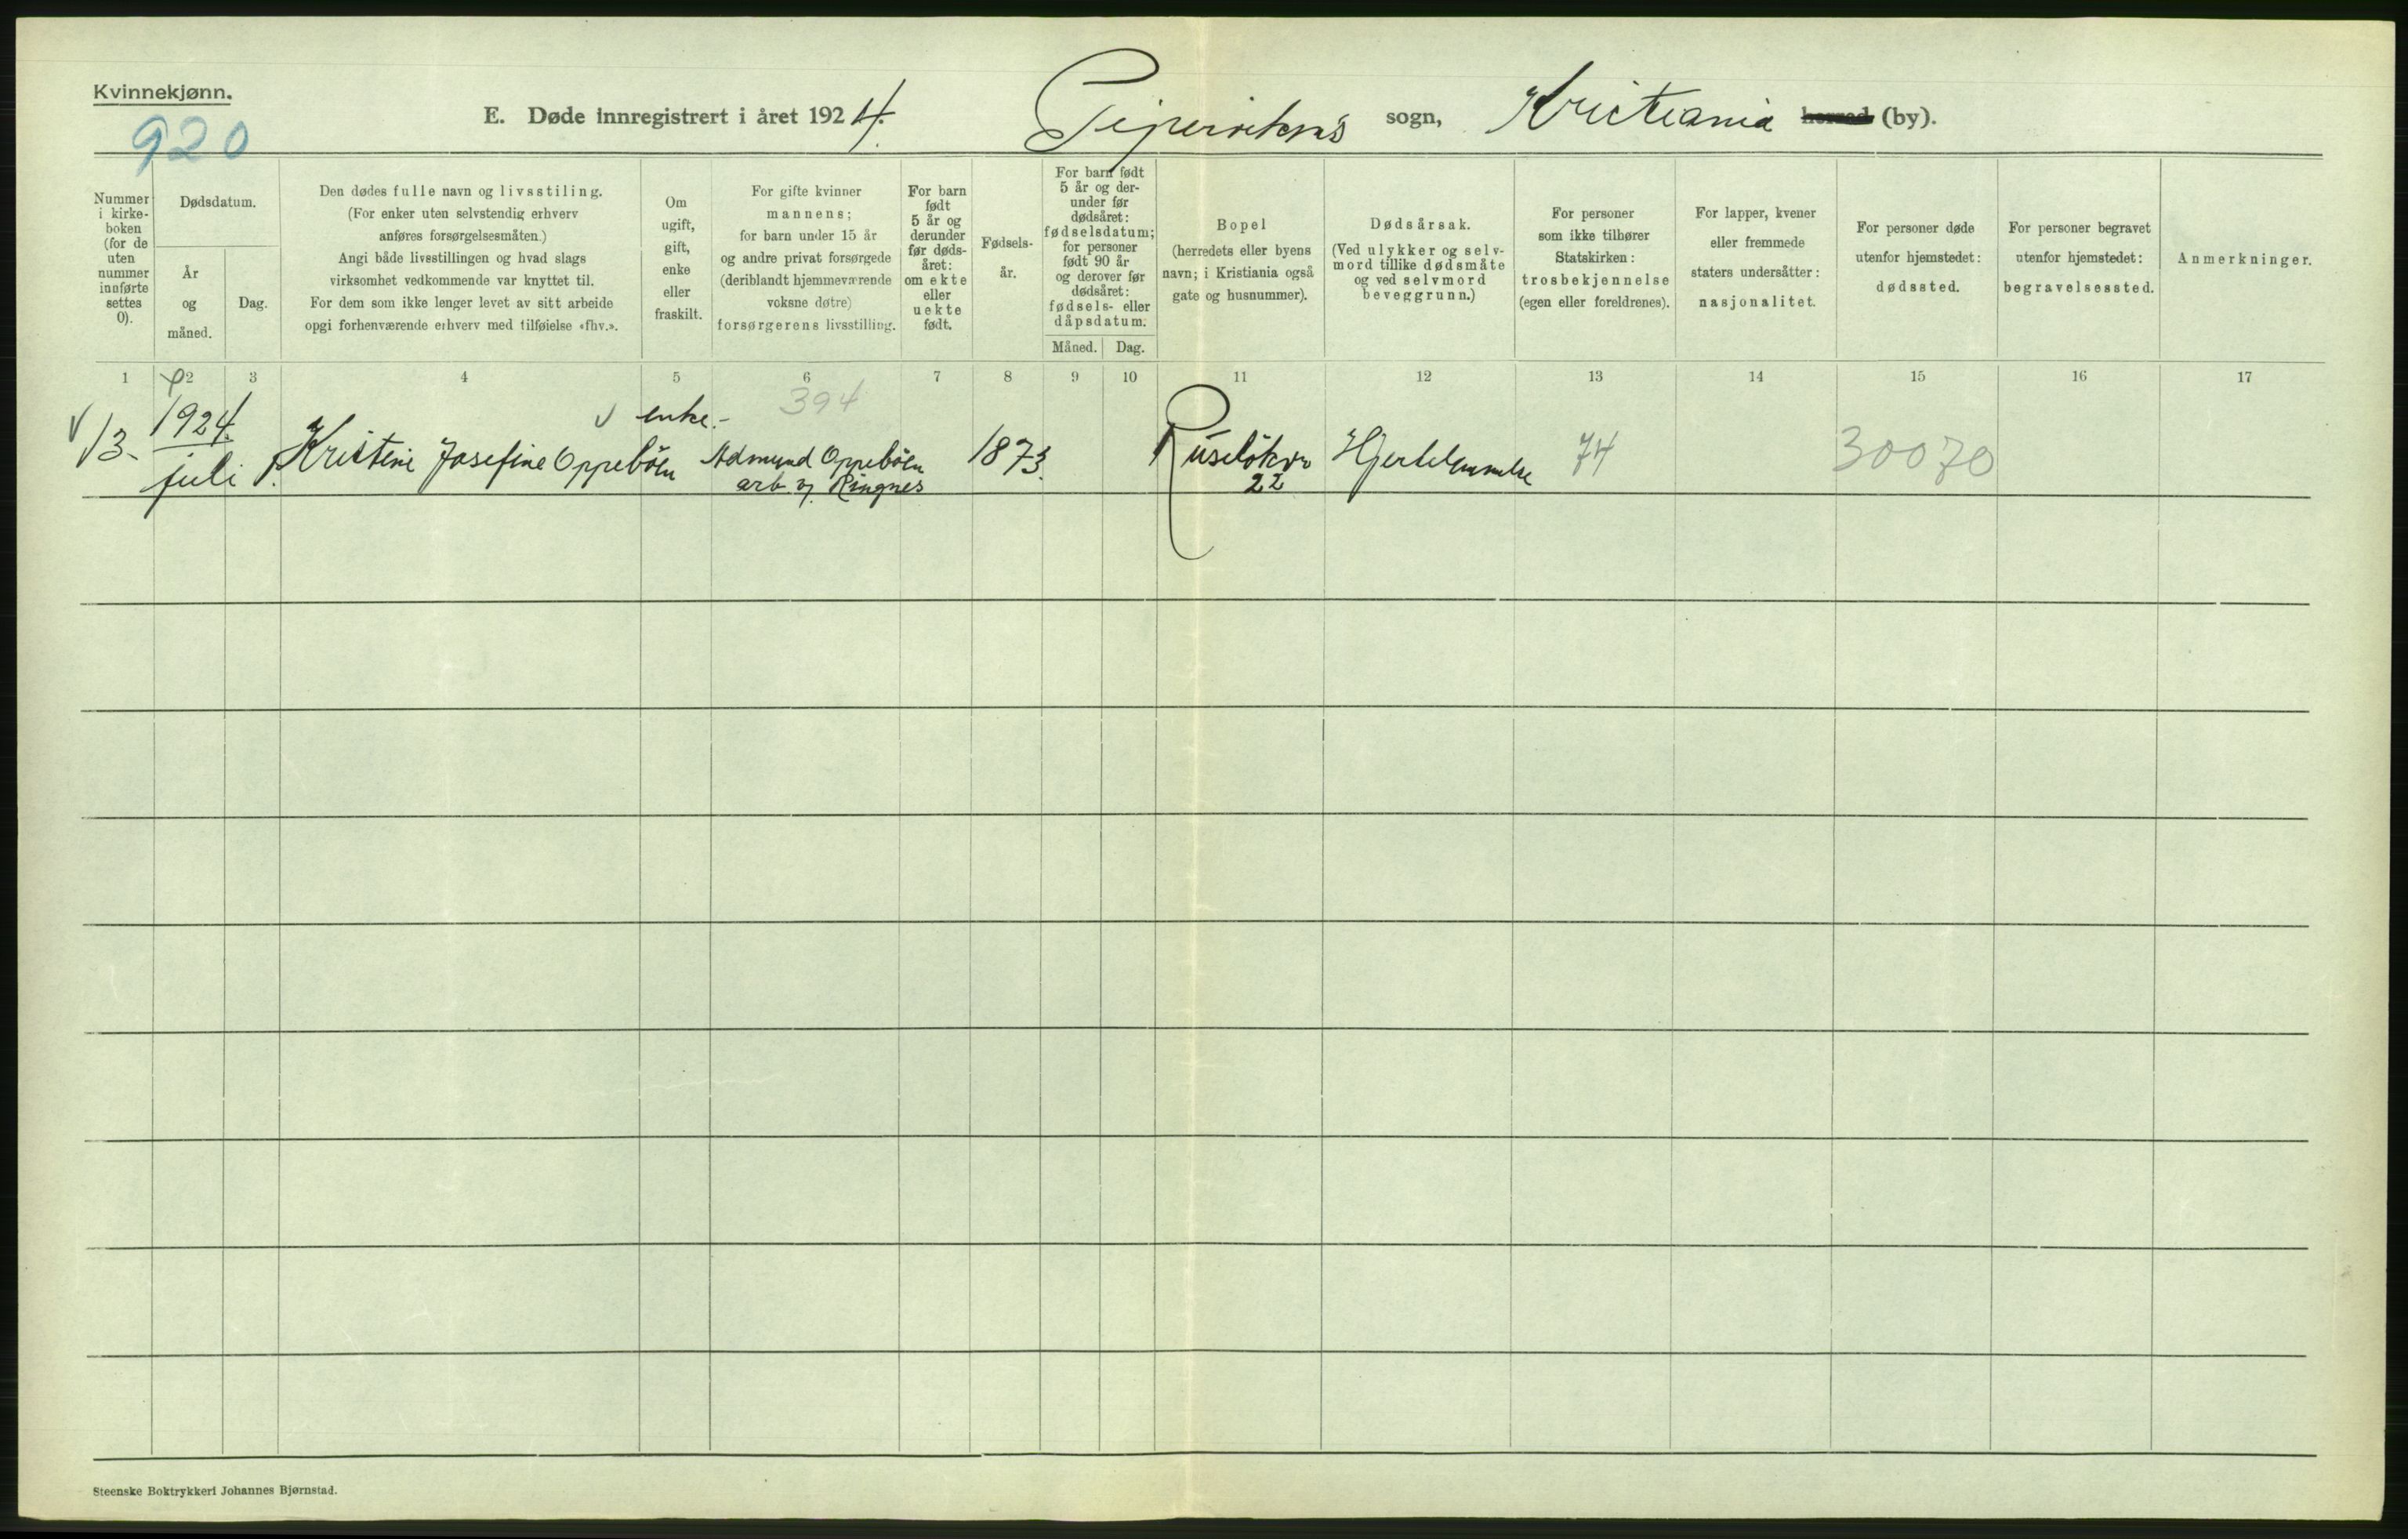 Kvinnekjønn.
920
E. Døde innregistrert i året 1924. Pipervikens sogn, Kristiania herred (by).
Nummer i kirke- boken (for de uten nummer innførte settes 0).
Dødsdatum.
År og måned.
Dag.
Den dødes fulle navn og livsstiling.
(For enker uten selvstendig erhverv
anføres forsørgelsesmåten.)
Angi både livsstillingen og hvad slags
virksomhet vedkommende var knyttet til.
For dem som ikke lenger levet av sitt arbeide
opgi forhenværende erhverv med tilføielse «fhv.».
Om
ugift,
gift,
enke
eller
fraskilt.
For gifte kvinner
mannens;
for barn under 15 år
og andre privat forsørgede
(deriblandt hjemmeværende
voksne døtre)
forsørgerens livsstilling.
For barn
født
5 år og
derunder
før døds-
året:
om ekte
eller
uekte
født.
Fødsels-
år.
For barn født
5 år og der-
under før
dødsåret:
fødselsdatum;
for personer
født 90 år
og derover før
dødsåret:
fødsels- eller
dåpsdatum.
Måned. Dag.
Bopel
(herredets eller byens
navn; i Kristiania også
gate og husnummer).
Dødsårsak.
(Ved ulykker og selv-
mord tillike dødsmåte
og ved selvmord
beveggrunn.)
For personer
som ikke tilhører
Statskirken:
trosbekjennelse
(egen eller foreldrenes).
For lapper, kvener
eller fremmede
staters undersåtter:
nasjonalitet.
For personer døde
utenfor hjemstedet:
dødssted.
For personer begravet
utenfor hjemstedet:
begravelsessted.
Anmerkninger.
1 2 3 4 5 6 7 8 9 10 11 12 13 14 15 16 17
394
1924.
enke.-
13. juli 1. Kristine Josefine Oppeböen Admund Oppeböen 1873. Ruselökvn Hjertelammelse 74 30070
arb. v. Ringnes 22
Steenske Boktrykkeri Johannes Bjørnstad.